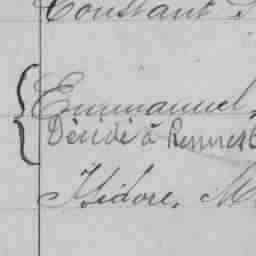 Constant
Emmanuel,
Décidé à Rennes
Isidore, M